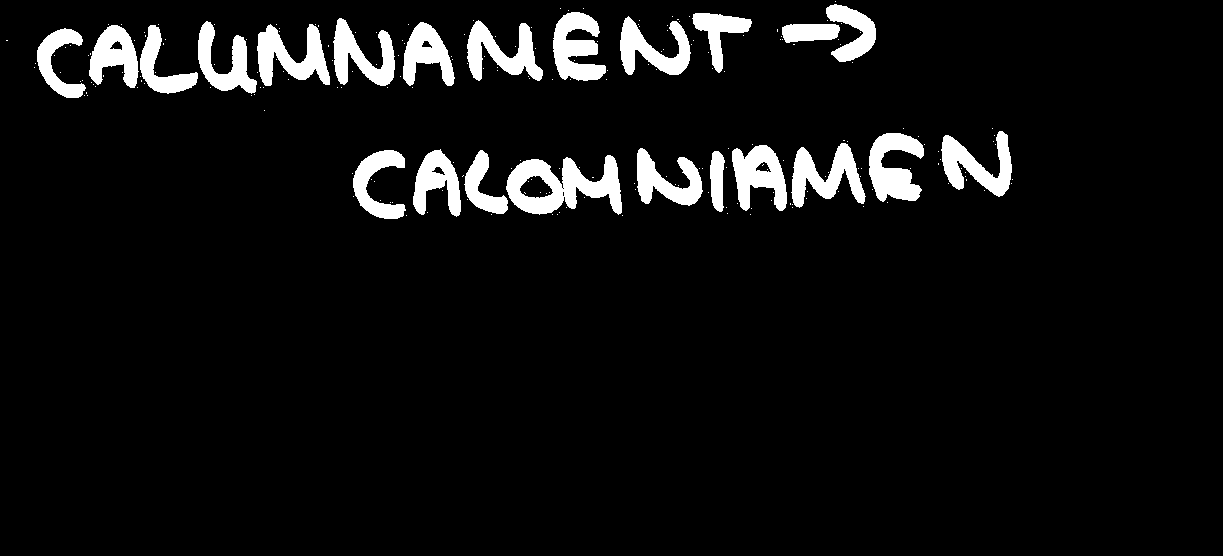 CALUMNAMENT →
CALOMNIAMEN